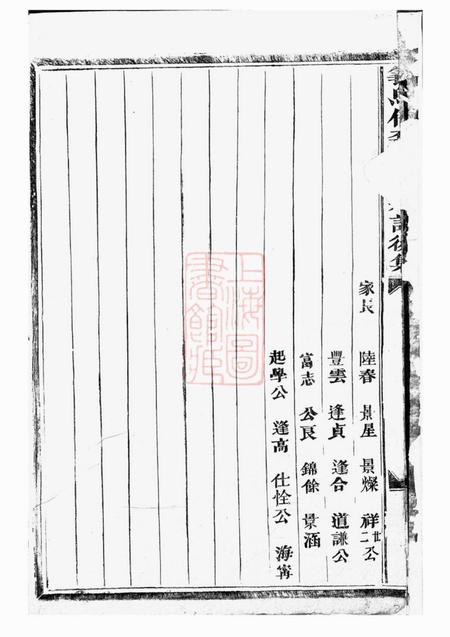 家長 陸春 景星 景燦 祥廿二公
豐雲 逢貞 逢合 道謙公
富志 公良 錦餘 景涵
起學公 逢高 仕恮公 海寗
上海圖書館藏